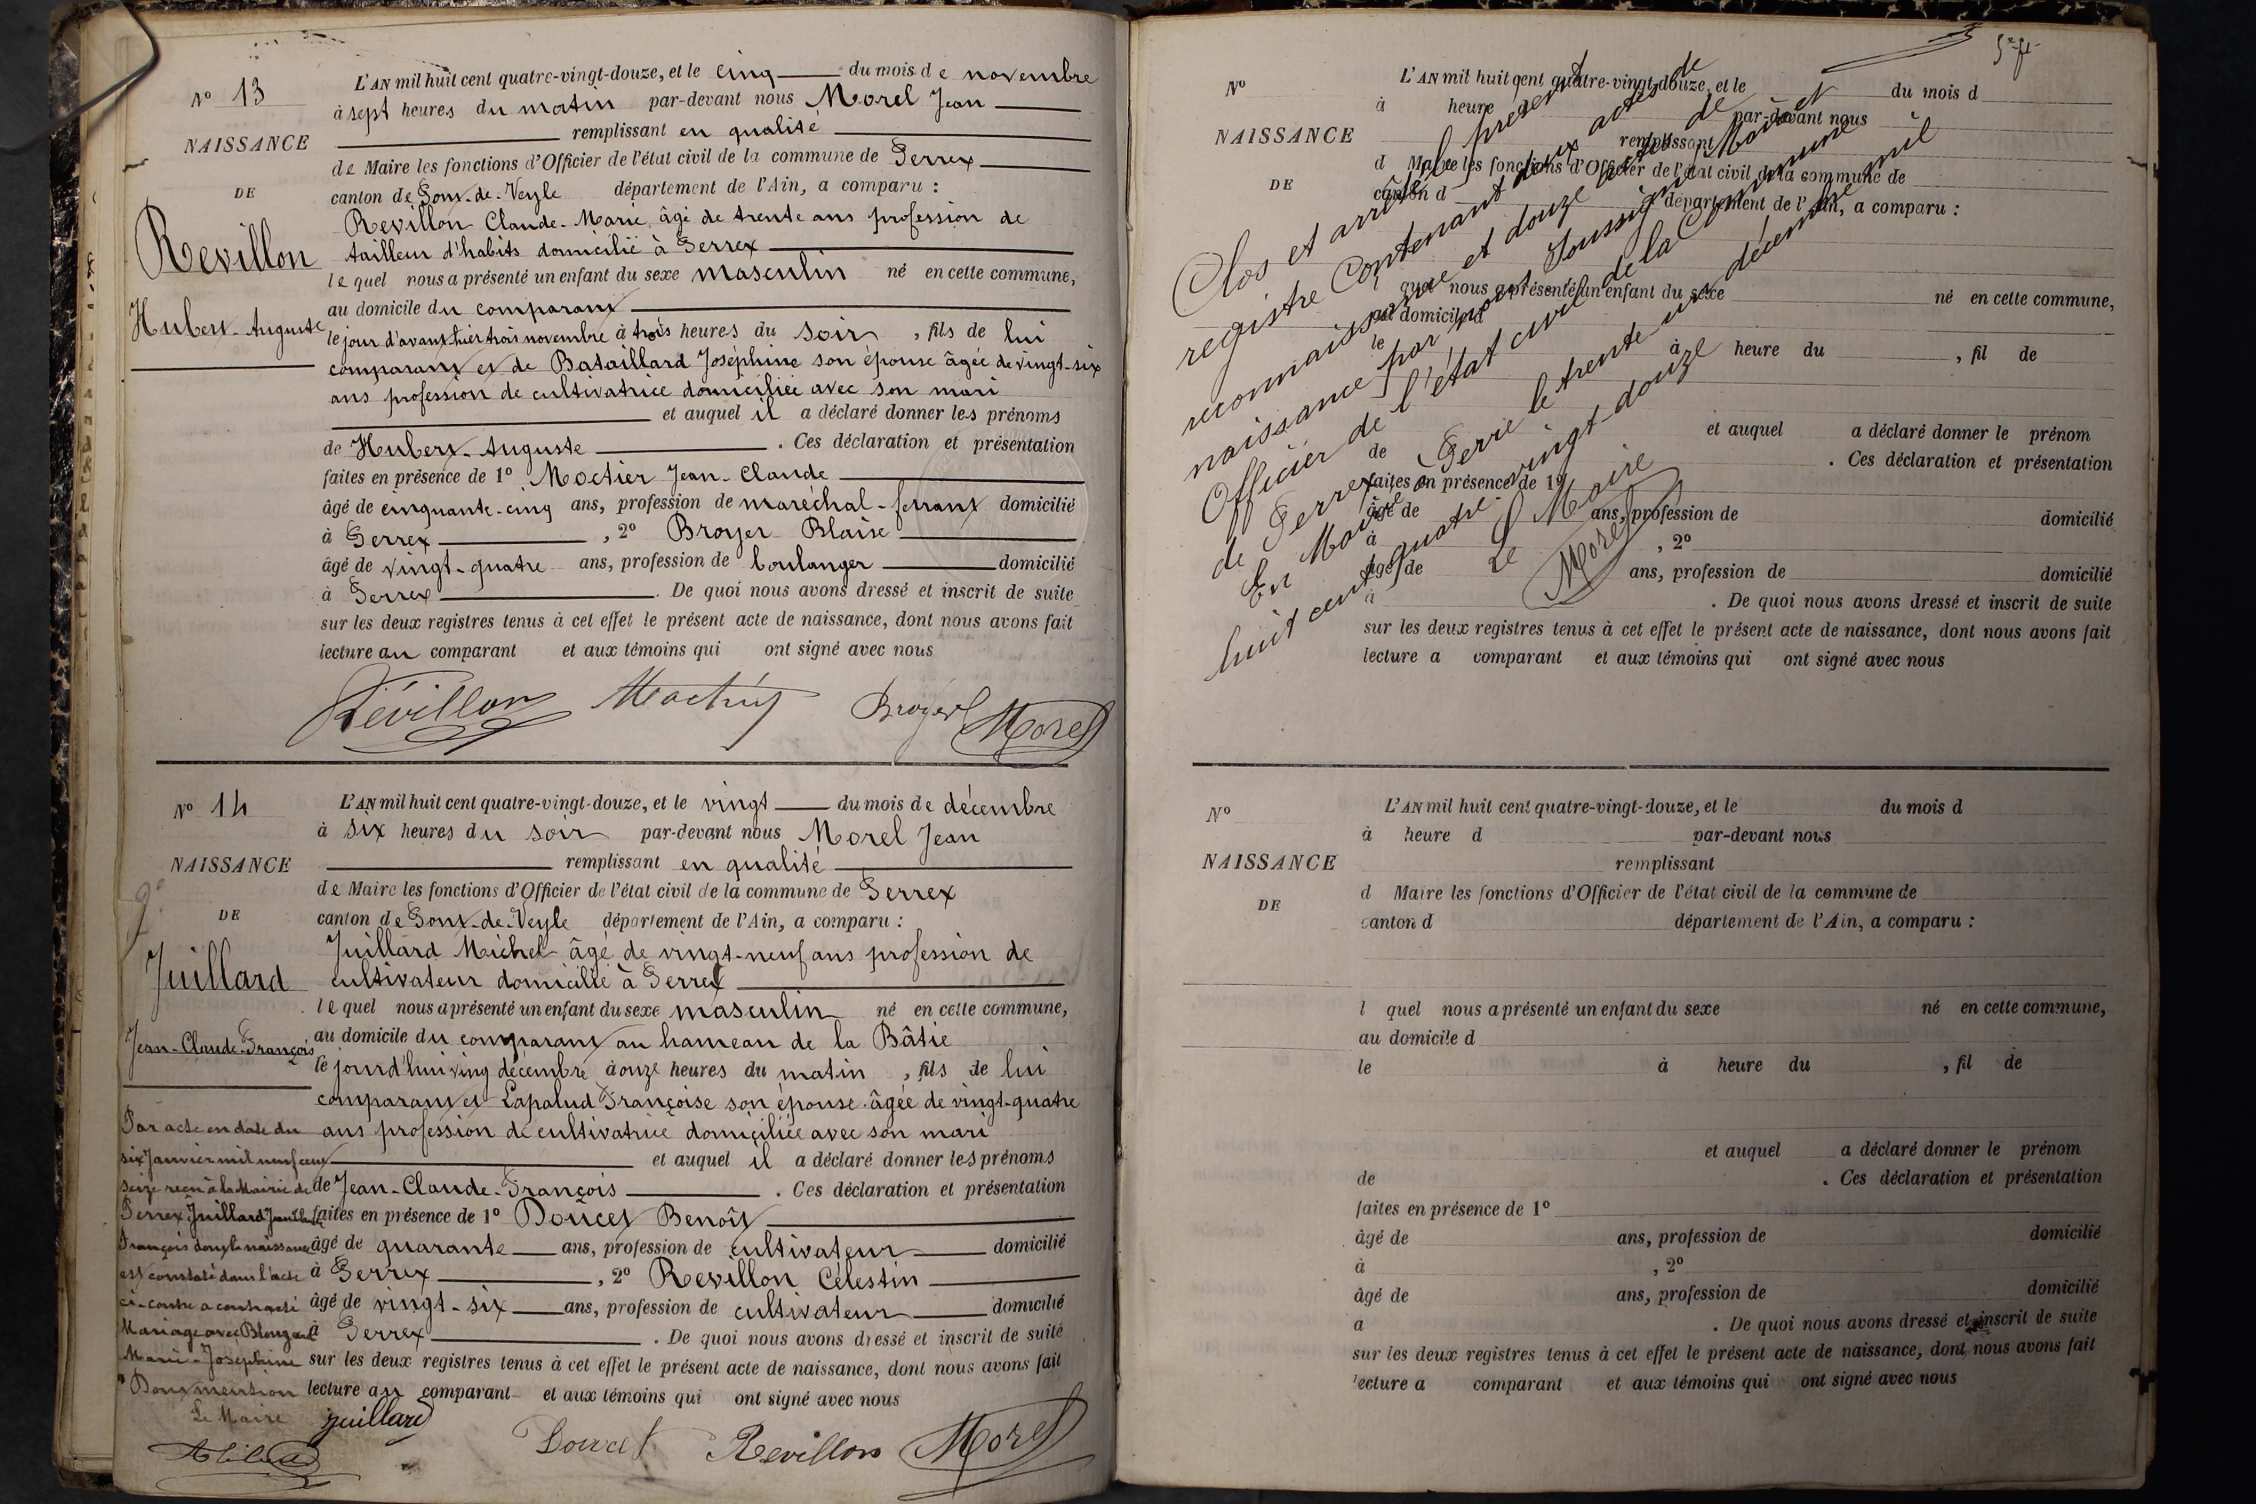 Nº 13
NAISSANCE
DE
Revillon
Hubert-Auguste
L'AN mil huit cent quatre-vingt-douze, et le cinq du mois de novembre
à sept heures du matin par-devant nous Morel Jean
remplissant en qualité
de Maire les fonctions d'Officier de l'état civil de la commune de Perrex
canton de Pont-de-Veyle département de l'Ain, a comparu :
Revillon Claude-Marie âgé de trente ans profession de
tailleur d'habits domicilié à Perrex
lequel nous a présenté un enfant du sexe masculin né en cette commune,
au domicile du comparant
le jour d'avant hier trois novembre à trois heures du soir, fils de lui
comparant et de Bataillard Joséphine son épouse âgée de vingt-six
ans profession de cultivatrice domiciliée avec son mari
et auquel il a déclaré donner les prénoms
de Hubert-Auguste. Ces déclaration et présentation
faites en présence de 1º Moctier Jean-Claude
âgé de cinquante-cinq ans, profession de maréchal-ferrant domicilié
à Perrex, 2º Broyer Blaise
âgé de vingt-quatre ans, profession de boulanger domicilié
à Perrex. De quoi nous avons dressé et inscrit de suite
sur les deux registres tenus à cet effet le présent acte de naissance, dont nous avons fait
lecture au comparant et aux témoins qui ont signé avec nous
Révillon Moctier Broyer Morel
Nº 14
NAISSANCE
DE
Juillard
Jean-Claude-François
L'AN mil huit cent quatre-vingt-douze, et le vingt du mois de décembre
à six heures du soir par-devant nous Morel Jean
remplissant en qualité
de Maire les fonctions d'Officier de l'état civil de la commune de Perrex
canton de Pont-de-Veyle département de l'Ain, a comparu :
Juillard Michel âgé de vingt-neuf ans profession de
cultivateur domicilié à Perrex
lequel nous a présenté un enfant du sexe masculin né en cette commune,
au domicile du comparant au hameau de la Bâtie
le jourd'hui ving décembre à onze heures du matin, fils de lui
comparant et Lapalud Françoise son épouse âgée de vingt-quatre
ans profession de cultivatrice domiciliée avec son mari
et auquel il a déclaré donner les prénoms
de Jean-Claude-François. Ces déclaration et présentation
faites en présence de 1º Doucet Benoît
âgé de quarante ans, profession de cultivateur domicilié
à Perrex, 2º Revillon Célestin
âgé de vingt-six ans, profession de cultivateur domicilié
à Perrex. De quoi nous avons dressé et inscrit de suite
sur les deux registres tenus à cet effet le présent acte de naissance, dont nous avons fait
lecture au comparant et aux témoins qui ont signé avec nous
juillard Doucet Revillon Morel
Par acte en date du
six Janvier mil neuf cent
seize reçu à la Mairie de
Perrex Juillard Jean Claude
François dont la naissance
est constaté dans l'acte
ci-contre a contracté
Mariage avec
Marie-Joséphine
Dont mention
Le Maire
Nº
NAISSANCE
DE
L'AN mil huit cent quatre-vingt-douze, et le du mois d
à heure par-devant nous
remplissant
d Maire les fonctions d'Officier de l'état civil de la commune de
canton d département de l'Ain, a comparu :
quel nous a présenté un enfant du sexe né en cette commune,
au domicile d
le à heure du , fil de
et auquel a déclaré donner le prénom
de . Ces déclaration et présentation
faites en présence de 1º
âgé de ans, profession de domicilié
à , 2º
âgé de ans, profession de domicilié
à . De quoi nous avons dressé et inscrit de suite
sur les deux registres tenus à cet effet le présent acte de naissance, dont nous avons fait
lecture a comparant et aux témoins qui ont signé avec nous
Clos et arrêté le présent
registre Contenant deux actes de
reconnaissance et douze actes de
naissance par nous soussigné Maire et
Officier de l'état civil de la Commune
de Perrex
En Mairie à Perrex le trente un décembre mil
huit cent quatre-vingt-douze
Le Maire
Morel
Nº
NAISSANCE
DE
L'AN mil huit cent quatre-vingt-douze, et le du mois d
à heure d par-devant nous
remplissant
d Maire les fonctions d'Officier de l'état civil de la commune de
canton d département de l'Ain, a comparu :
l quel nous a présenté un enfant du sexe né en cette commune,
au domicile d
le à heure du , fil de
et auquel a déclaré donner le prénom
de . Ces déclaration et présentation
faites en présence de 1º
âgé de ans, profession de domicilié
à , 2º
âgé de ans, profession de domicilié
à . De quoi nous avons dressé et inscrit de suite
sur les deux registres tenus à cet effet le présent acte de naissance, dont nous avons fait
lecture a comparant et aux témoins qui ont signé avec nous